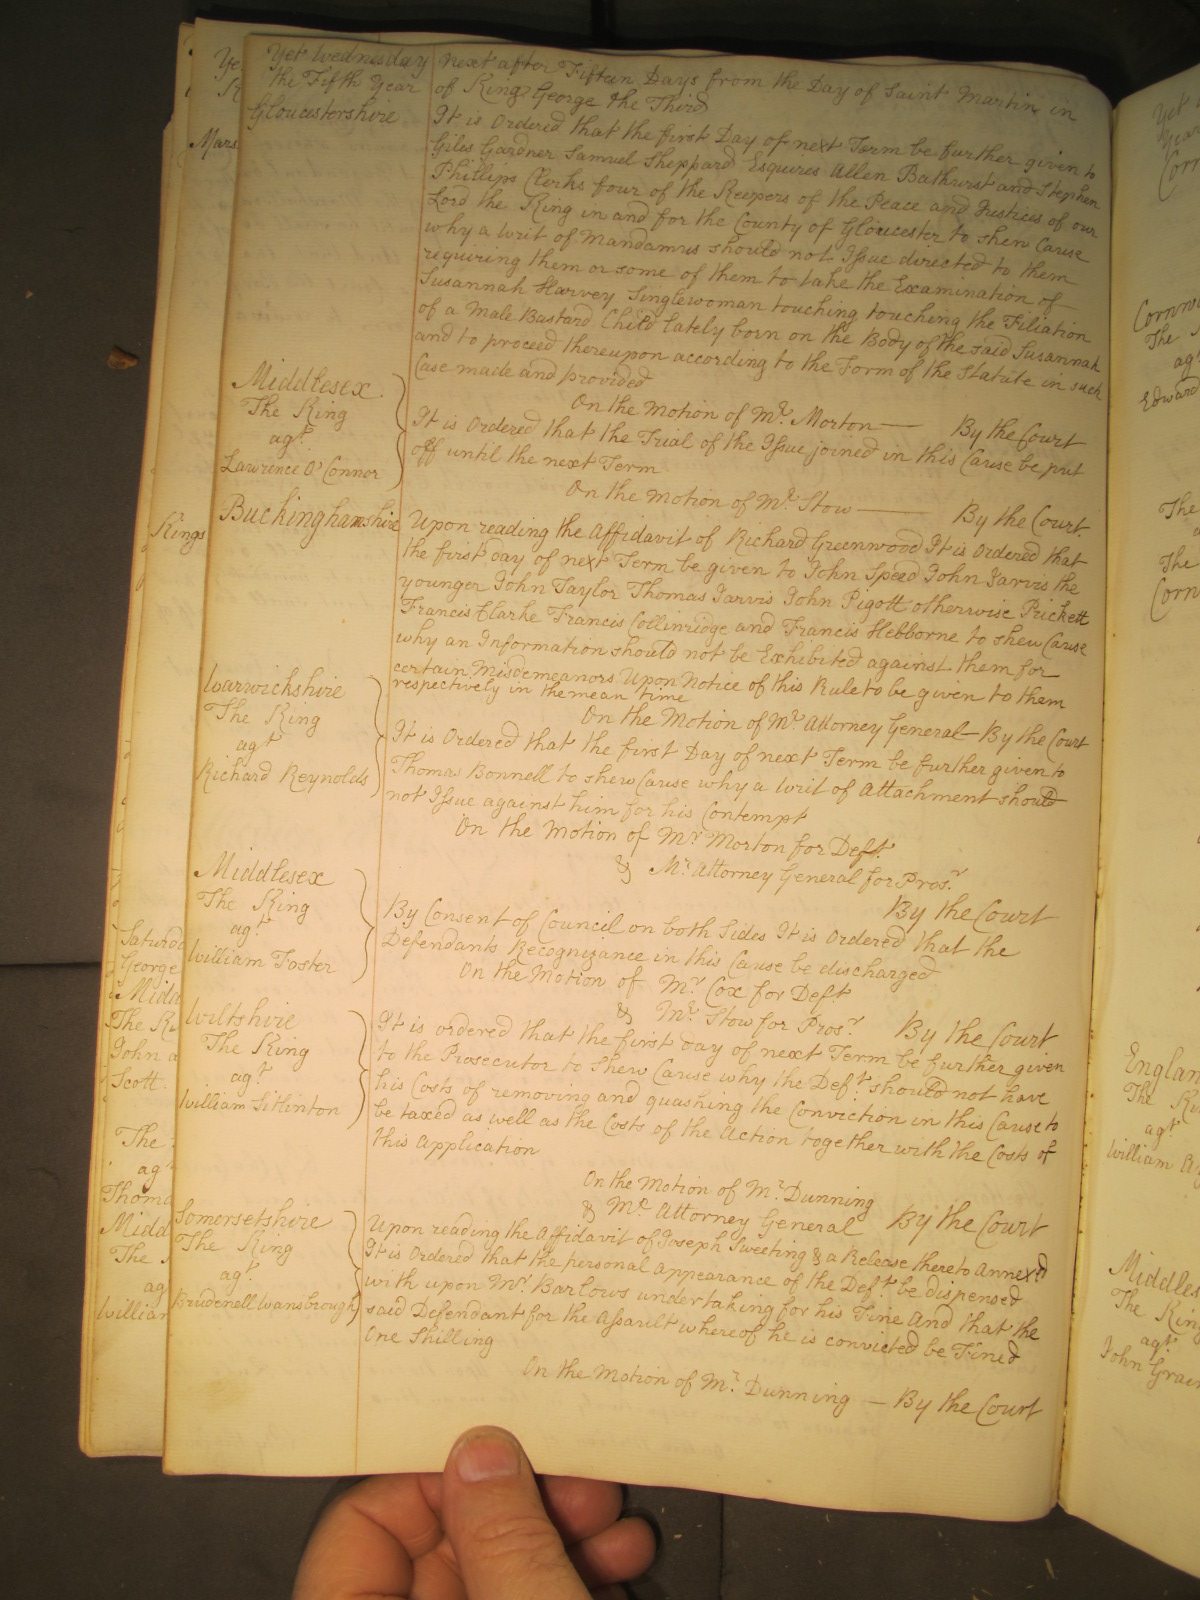 Yet Wednesday next after Fifteen Days from the Day of Saint Martin in
the Fifth Year of King George the Third
Gloucestershire
It is Ordered that the first Day of next Term be further given to
Giles Gardner Samuel Sheppard Esquires Allen Bathurst and Stephen
Phillips Clerks four of the Keepers of the Peace and Justices of our
Lord the King in and for the County of Gloucester to shew Cause
why a Writ of Mandamus should not Issue directed to them
requiring them or some of them to take the Examination of
Susannah Harvey Singlewoman touching touching the Filiation
of a Male Bastard Child lately born on the Body of the said Susannah
and to proceed thereupon according to the Form of the Statute in such
Case made and provided
On the Motion of Mr. Morton — By the Court
Middlesex
The King
agt.
Lawrence O'Connor
It is Ordered that the Trial of the Issue joined in this Cause be put
off until the next Term
On the Motion of Mr. Stow — By the Court.
Buckinghamshire
Upon reading the Affidavit of Richard Greenwood It is Ordered that
the first day of next Term be given to John Speed John Jarvis the
younger John Taylor Thomas Jarvis John Pigott otherwise Prickett
Francis Clarke Francis Collinridge and Francis Hebborne to shew Cause
why an Information should not be Exhibited against them for
certain Misdemeanors Upon Notice of this Rule to be given to them
respectively in the mean time
On the Motion of Mr. Attorney General — By the Court
Warwickshire
The King
agt
Richard Reynolds
It is Ordered that the first Day of next Term be further given to
Thomas Bonnell to shew Cause why a Writ of Attachment should
not Issue against him for his Contempt
On the Motion of Mr. Morton for Deft.
& Mr. Attorney General for Prosr.
By the Court
Middlesex
The King
agt
William Foster
By Consent of Council on both Sides It is Ordered that the
Defendants Recognizance in this Cause be discharged
On the Motion of Mr. Cox for Deft
& Mr. Stow for Prosr. By the Court
Wiltshire
The King
agt
William Sitlinton
It is ordered that the first day of next Term be further given
to the Prosecutor to Shew Cause why the Deft. should not have
his Costs of removing and quashing the Conviction in this Cause to
be taxed as well as the Costs of the Action together with the Costs of
this Application
On the Motion of Mr. Dunning
& Mr. Attorney General By the Court
Somersetshire
The King
agt.
Brudenell Wansbrough
Upon reading the Affidavit of Joseph Sweeting & a Release thereto Annexed
It is Ordered that the personal Appearance of the Deft. be dispensed
with upon Mr. Barlows undertaking for his Fine And that the
said Defendant for the Assault whereof he is convicted be Fined
One Shilling
On the Motion of Mr. Dunning — By the Court
Kings
George
The
ag
The
ag
The
Edward
The
The
The
agt
William
The
agt
John